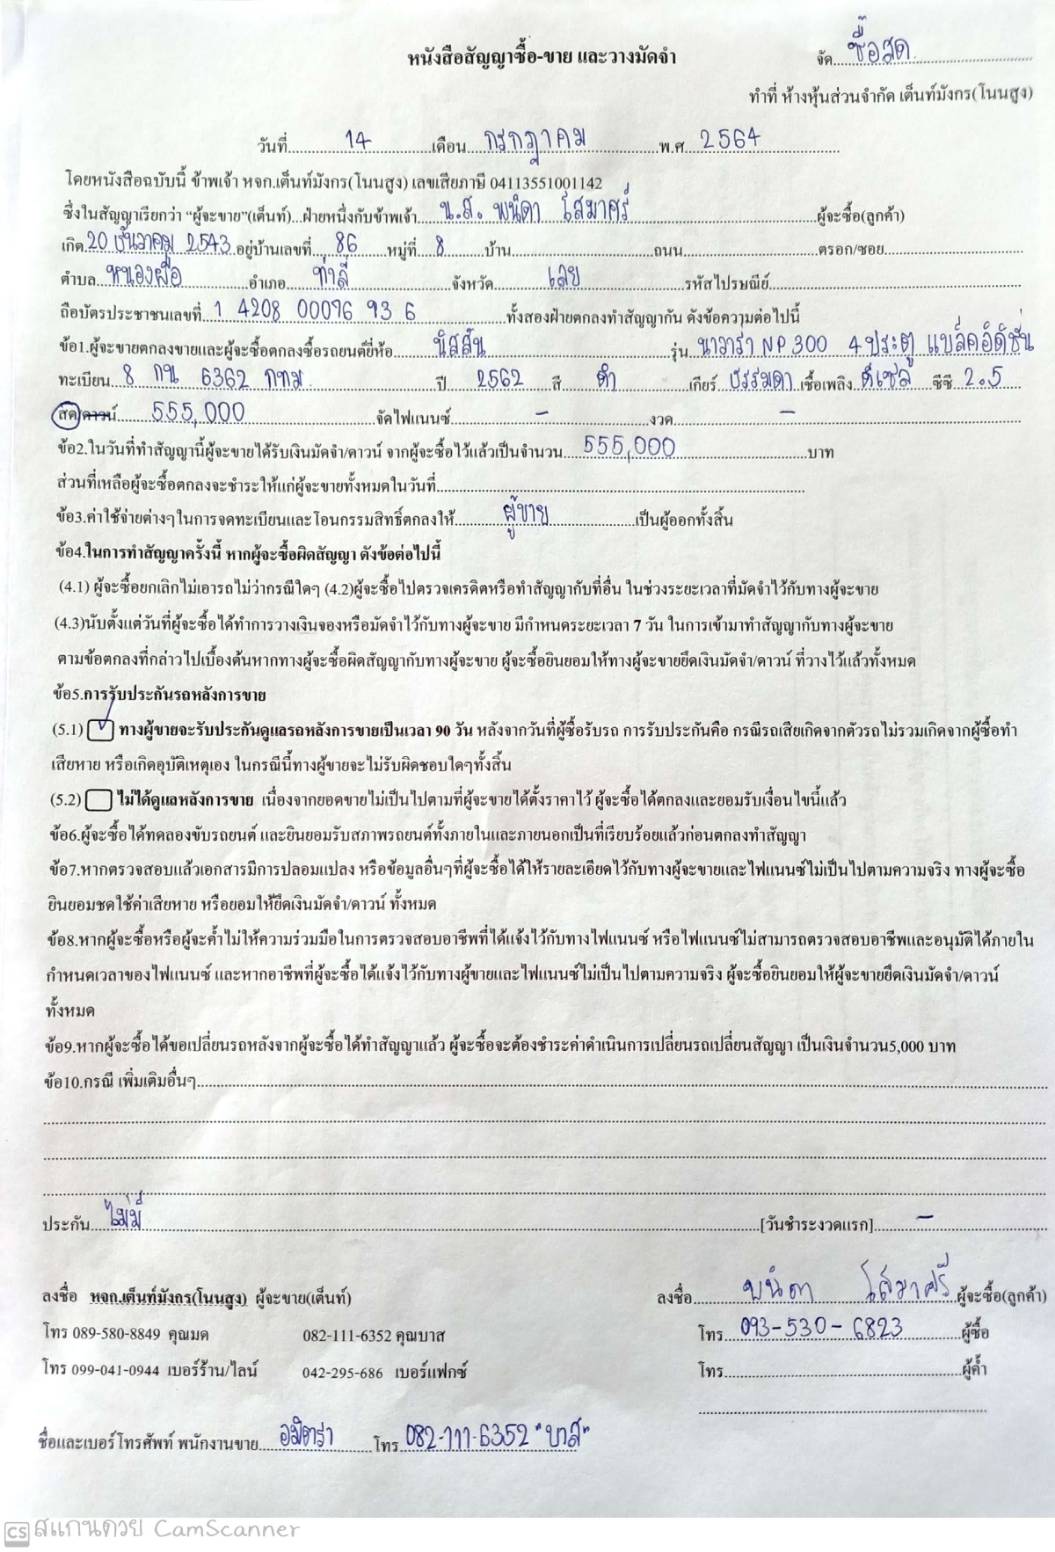 หนังสือสัญญาซื้อ-ขาย และวางมัดจำ จัด...ซื้อสด
ทำที่ ห้างหุ้นส่วนจำกัด เต็นท์มังกร(โนนสูง)
วันที่...14...เดือน...กรกฎาคม...พ.ศ...2564
โดยหนังสือฉบับนี้ ข้าพเจ้า หจก.เต็นท์มังกร(โนนสูง) เลขเสียภาษี 04113551001142
ซึ่งในสัญญาเรียกว่า "ผู้จะขาย"(เต็นท์)...ฝ่ายหนึ่งกับข้าพเจ้า...น.ส. พนิดา โสมาศรี...ผู้จะซื้อ(ลูกค้า)
เกิด 20 ธันวาคม 2543 อยู่บ้านเลขที่...86...หมู่ที่...8...บ้าน...ถนน...ตรอก/ซอย...
ตำบล...หนองผือ...อำเภอ...ท่าลี่...จังหวัด...เลย...รหัสไปรษณีย์...
ถือบัตรประชาชนเลขที่...1 4208 00096 93 6...ทั้งสองฝ่ายตกลงทำสัญญากัน ดังข้อความต่อไปนี้
ข้อ1.ผู้จะขายตกลงขายและผู้จะซื้อตกลงซื้อรถยนต์ยี่ห้อ...นิสสัน...รุ่น...นาวาร่า NP 300 4 ประตู แบล็คอิดิชั่น
ทะเบียน...8 กน 6362 กทม...ปี...2562...สี...ดำ...เกียร์...ธรรมดา...เชื้อเพลิง...ดีเซล...ซีซี...2.5
สด/ดาวน์...555,000...จัดไฟแนนซ์...-...งวด...-
ข้อ2.ในวันที่ทำสัญญานี้ผู้จะขายได้รับเงินมัดจำ/ดาวน์ จากผู้จะซื้อไว้แล้วเป็นจำนวน...555,000...บาท
ส่วนที่เหลือผู้จะซื้อตกลงจะชำระให้แก่ผู้จะขายทั้งหมดในวันที่...
ข้อ3.ค่าใช้จ่ายต่างๆในการจดทะเบียนและโอนกรรมสิทธิ์ตกลงให้...ผู้ขาย...เป็นผู้ออกทั้งสิ้น
ข้อ4.ในการทำสัญญาครั้งนี้ หากผู้จะซื้อผิดสัญญา ดังข้อต่อไปนี้
(4.1) ผู้จะซื้อยกเลิกไม่เอารถไม่ว่ากรณีใดๆ (4.2)ผู้จะซื้อไปตรวจเครดิตหรือทำสัญญากับที่อื่น ในช่วงระยะเวลาที่มัดจำไว้กับทางผู้จะขาย
(4.3)นับตั้งแต่วันที่ผู้จะซื้อได้ทำการวางเงินจองหรือมัดจำไว้กับทางผู้จะขาย มีกำหนดระยะเวลา 7 วัน ในการเข้ามาทำสัญญากับทางผู้จะขาย
ตามข้อตกลงที่กล่าวไปเบื้องต้นหากทางผู้จะซื้อผิดสัญญากับทางผู้จะขาย ผู้จะซื้อยินยอมให้ทางผู้จะขายยึดเงินมัดจำ/ดาวน์ ที่วางไว้แล้วทั้งหมด
ข้อ5.การรับประกันรถหลังการขาย
(5.1) ทางผู้ขายจะรับประกันดูแลรถหลังการขายเป็นเวลา 90 วัน หลังจากวันที่ผู้ซื้อรับรถ การรับประกันคือ กรณีรถเสียเกิดจากตัวรถไม่รวมเกิดจากผู้ซื้อทำ
เสียหาย หรือเกิดอุบัติเหตุเอง ในกรณีนี้ทางผู้ขายจะไม่รับผิดชอบใดๆทั้งสิ้น
(5.2) ไม่ได้ดูแลหลังการขาย เนื่องจากยอดขายไม่เป็นไปตามที่ผู้จะขายได้ตั้งราคาไว้ ผู้จะซื้อได้ตกลงและยอมรับเงื่อนไขนี้แล้ว
ข้อ6.ผู้จะซื้อได้ทดลองขับรถยนต์ และยินยอมรับสภาพรถยนต์ทั้งภายในและภายนอกเป็นที่เรียบร้อยแล้วก่อนตกลงทำสัญญา
ข้อ7.หากตรวจสอบแล้วเอกสารมีการปลอมแปลง หรือข้อมูลอื่นๆที่ผู้จะซื้อได้ให้รายละเอียดไว้กับทางผู้จะขายและไฟแนนซ์ไม่เป็นไปตามความจริง ทางผู้จะซื้อ
ยินยอมชดใช้ค่าเสียหาย หรือยอมให้ยึดเงินมัดจำ/ดาวน์ ทั้งหมด
ข้อ8.หากผู้จะซื้อหรือผู้จะค้ำไม่ให้ความร่วมมือในการตรวจสอบอาชีพที่ได้แจ้งไว้กับทางไฟแนนซ์ หรือไฟแนนซ์ไม่สามารถตรวจสอบอาชีพและอนุมัติได้ภายใน
กำหนดเวลาของไฟแนนซ์ และหากอาชีพที่ผู้จะซื้อได้แจ้งไว้กับทางผู้ขายและไฟแนนซ์ไม่เป็นไปตามความจริง ผู้จะซื้อยินยอมให้ผู้จะขายยึดเงินมัดจำ/ดาวน์
ทั้งหมด
ข้อ9.หากผู้จะซื้อได้ขอเปลี่ยนรถหลังจากผู้จะซื้อได้ทำสัญญาแล้ว ผู้จะซื้อจะต้องชำระค่าดำเนินการเปลี่ยนรถเปลี่ยนสัญญา เป็นเงินจำนวน5,000 บาท
ข้อ10.กรณี เพิ่มเติมอื่นๆ...
ประกัน...ไม่มี...[วันชำระงวดแรก]...-
ลงชื่อ หจก.เต็นท์มังกร(โนนสูง) ผู้จะขาย(เต็นท์) ลงชื่อ...พนิดา โสมาศรี...ผู้จะซื้อ(ลูกค้า)
โทร 089-580-8849 คุณมด 082-111-6352 คุณบาส โทร...093-530-6823...ผู้ซื้อ
โทร 099-041-0944 เบอร์ร้าน/ไลน์ 042-295-686 เบอร์แฟกซ์ โทร...ผู้ค้ำ
ชื่อและเบอร์โทรศัพท์ พนักงานขาย...อมิตร่า...โทร...082-111-6352 "บาส"
CS สแกนด้วย CamScanner